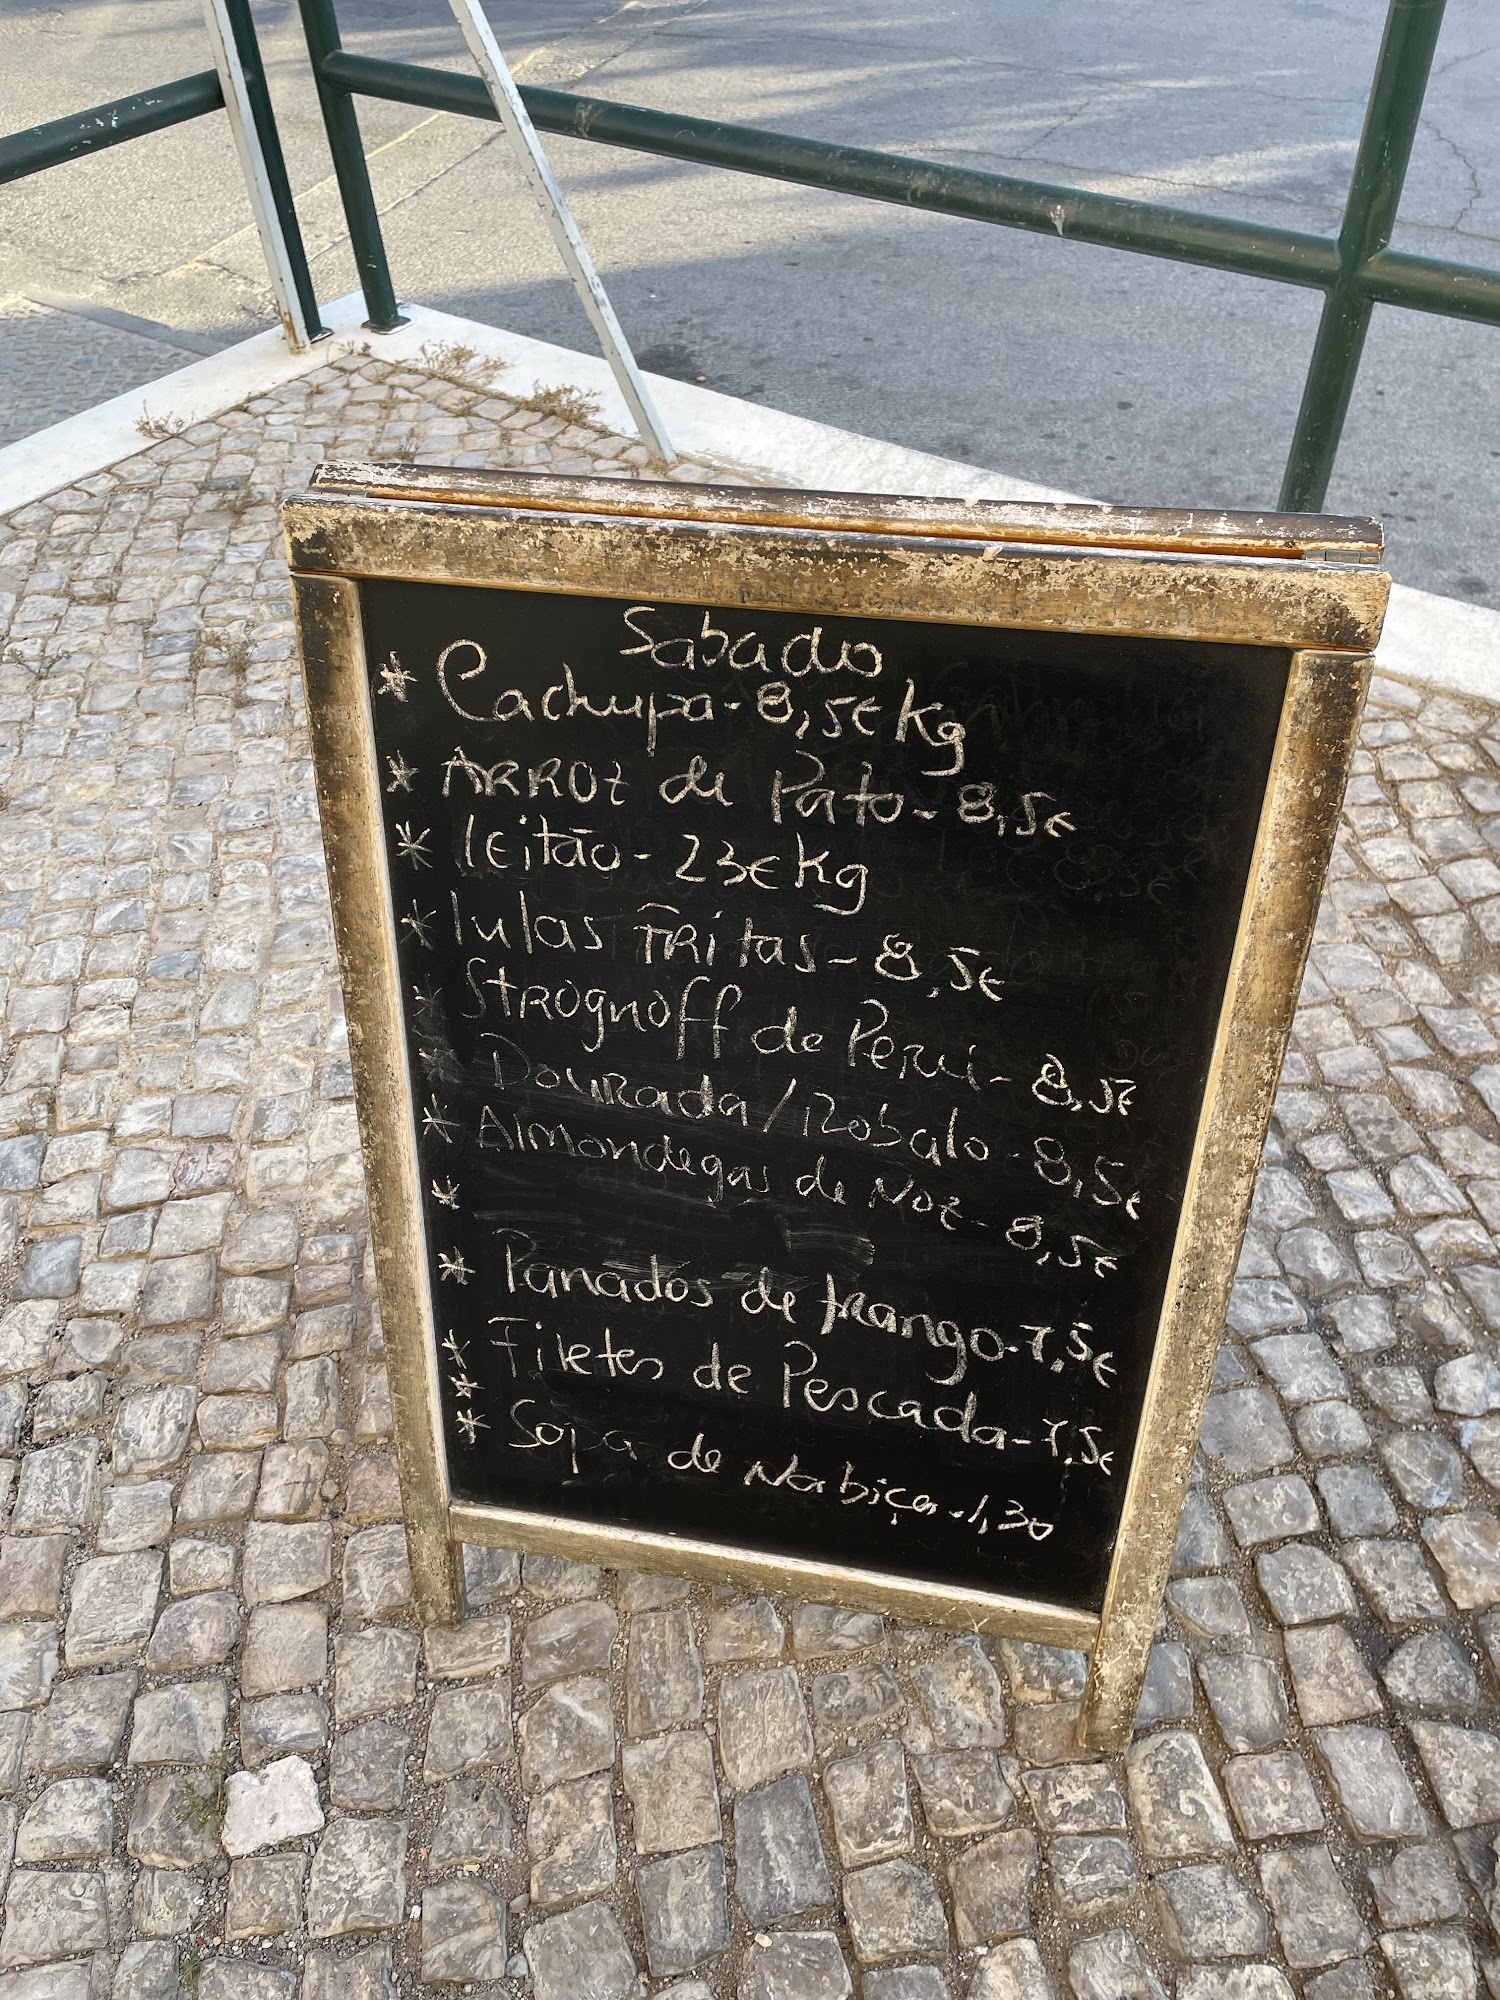 Sabado
* Cachupa - 8,5€ Kg
* ARROZ de Pato - 8,5€
* leitão - 23€ Kg
* lulas fRitas - 8,5€
* StRognoff de Peru - 8,5€
* DouRada / Robalo - 8,5€
* Almondegas de Noz - 8,5€
*
* Panados de frango - 7,5€
* Filetes de Pescada - 7,5€
*
* Sopa de Nabiça - 1,30